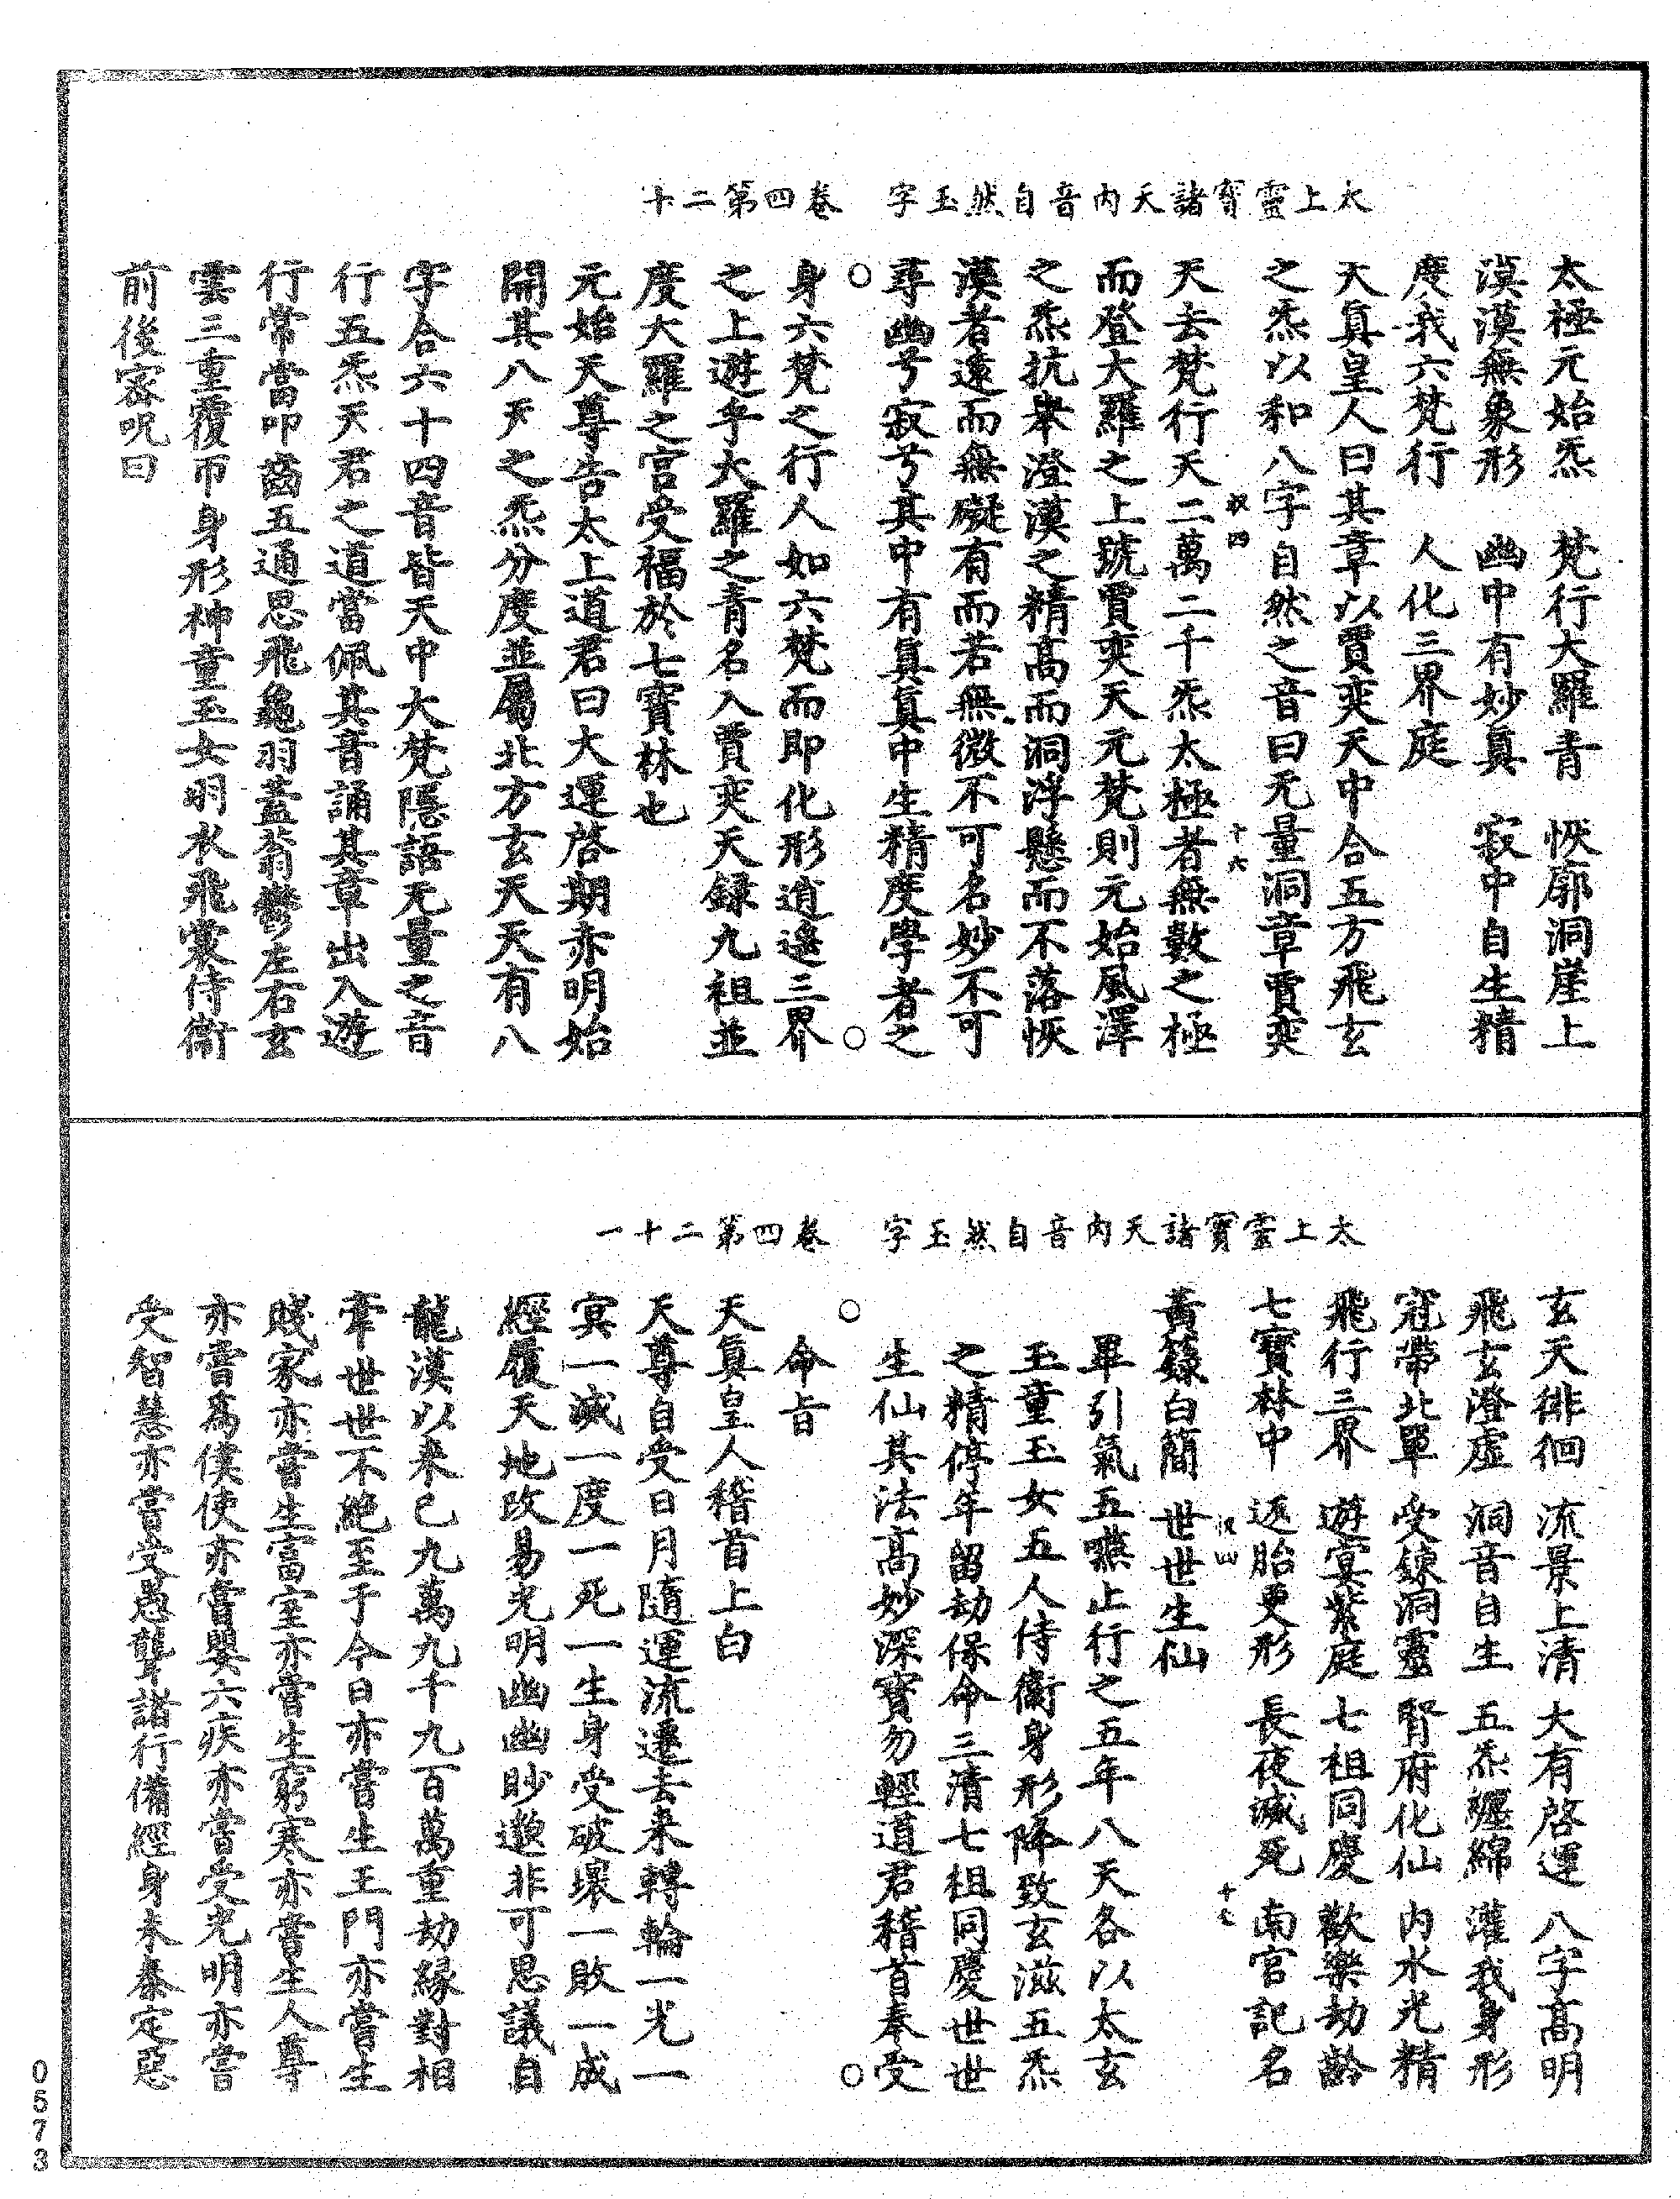 太上靈寳諸天内音自然玉字　卷四第二十
太極元始炁　梵行大羅青　恢廓洞崖上
漠漠無象形　幽中有妙眞　寂中自生精
度我六梵行　人化三界庭
天眞皇人曰其章以賈奕天中合五方飛玄
之炁以和八字自然之音曰无量洞章賈奕
四　十六
天去梵行天二萬二千炁太極者無數之極
而登大羅之上號賈奕天元梵則元始風澤
之炁抗舉澄漠之精高而洞浮懸而不落恢
漠者遠而無礙有而若無微不可名妙不可
尋幽兮寂兮其中有眞眞中生精度學者之
○　○
身六梵之行人如六梵而即化形逍遙三界
之上遊乎大羅之青名入賈奕天録九祖並
度大羅之宫受福於七寳林也
元始天尊告太上道君曰大運啓期亦明始
開其八天之炁分度並屬北方玄天天有八
字合六十四音皆天中大梵隱語无量之音
行五炁天君之道當佩其音誦其章出入遊
行常當叩齒五通思飛龜羽蓋蓊鬱左右玄
雲三重覆帀身形神童玉女羽衣飛裳侍衛
前後密呪曰
太上靈寳諸天内音自然玉字　卷四第二十一
玄天徘徊　流景上清　大有啓運　八字高明
飛玄澄虛　洞音自生　五炁纒綿　灌我身形
冠帶北單　受鍊洞靈　腎府化仙　内水光精
飛行三界　遊宴紫庭　七祖同慶　歡樂劫齡
七寳林中　返胎更形　長夜滅死　南宫記名
十七
黃籙白簡　世世生仙
畢引氣五嚥止行之五年八天各以太玄
玉童玉女五人侍衛身形降致玄滋五炁
之精停年留劫保命三清七祖同慶世世
生仙其法高妙深寳勿輕道君稽首奉受
○　○
命旨
天眞皇人稽首上白
天尊自受日月隨運流遷去来轉輪一光一
冥一滅一度一死一生身受破壞一敗一成
經履天地改易光明幽幽眇邈非可思議自
龍漢以来已九萬九千九百萬重劫緣對相
牽世世不絶至于今日亦嘗生王門亦嘗生
賤家亦嘗生富室亦嘗生窮寒亦嘗生人尊
亦嘗爲僕使亦嘗嬰六疾亦嘗受光明亦嘗
受智慧亦嘗受愚聾諸行備經身未泰定惡
0573